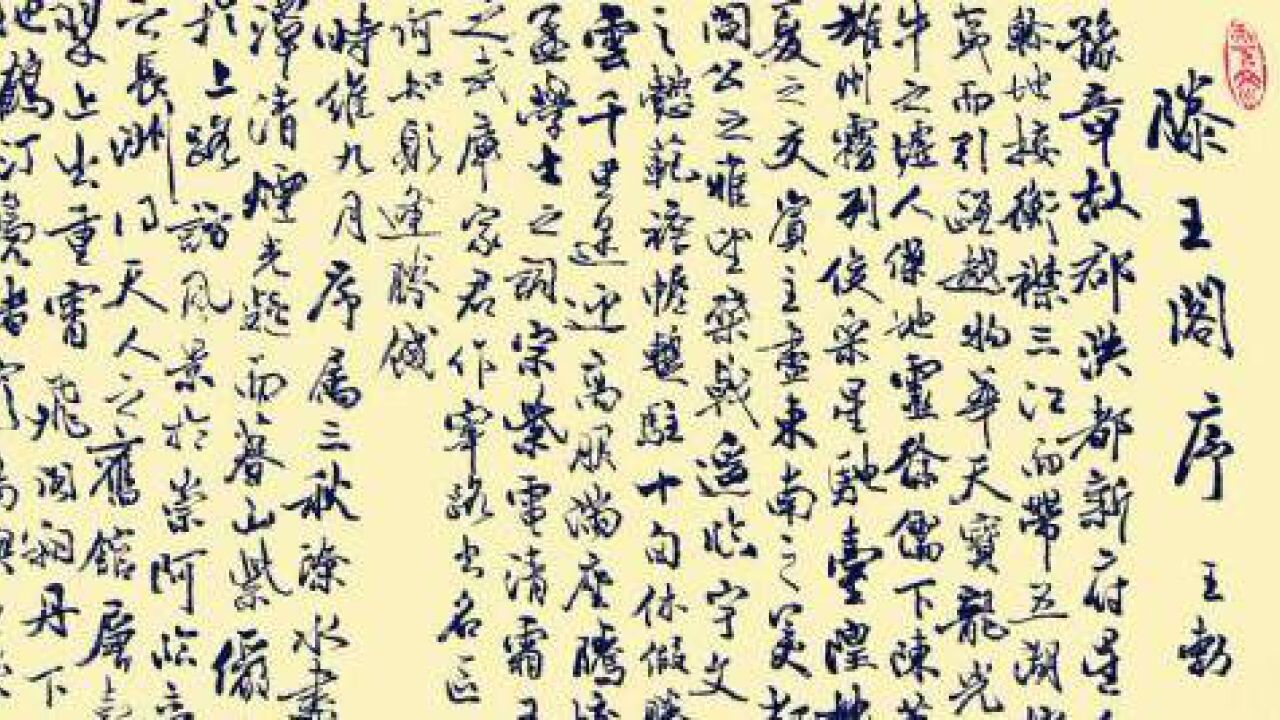 滕王阁序 王勃
豫章故郡洪都新府星
軫地接衡襟三江而帶五湖
而引甌越物華天寶龍光
牛之墟人傑地靈徐孺下陳
雄州霧列俊采星馳臺隍枕
夏之交賓主盡東南之美都
閻公之雅望棨戟遙臨宇文
之懿範襜帷暫駐十旬休假勝
雲千里逢迎高朋滿座騰
孟學士之詞宗紫電清霜王
之武庫家君作宰路出名區
何知躬逢勝餞
時維九月序属三秋潦水盡
潭清煙光凝而暮山紫儼
於上路訪風景於崇阿臨帝
之長洲得天人之舊館層
翠上出重霄飛閣翔丹下
鶴汀鳧渚窮島嶼